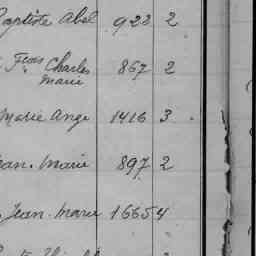 Baptiste Abel 928 2
Fcois Charles 867 2
Marie
Marie Ange 1416 3
Jean. Marie 897 2
Jean. Marie 1665 4